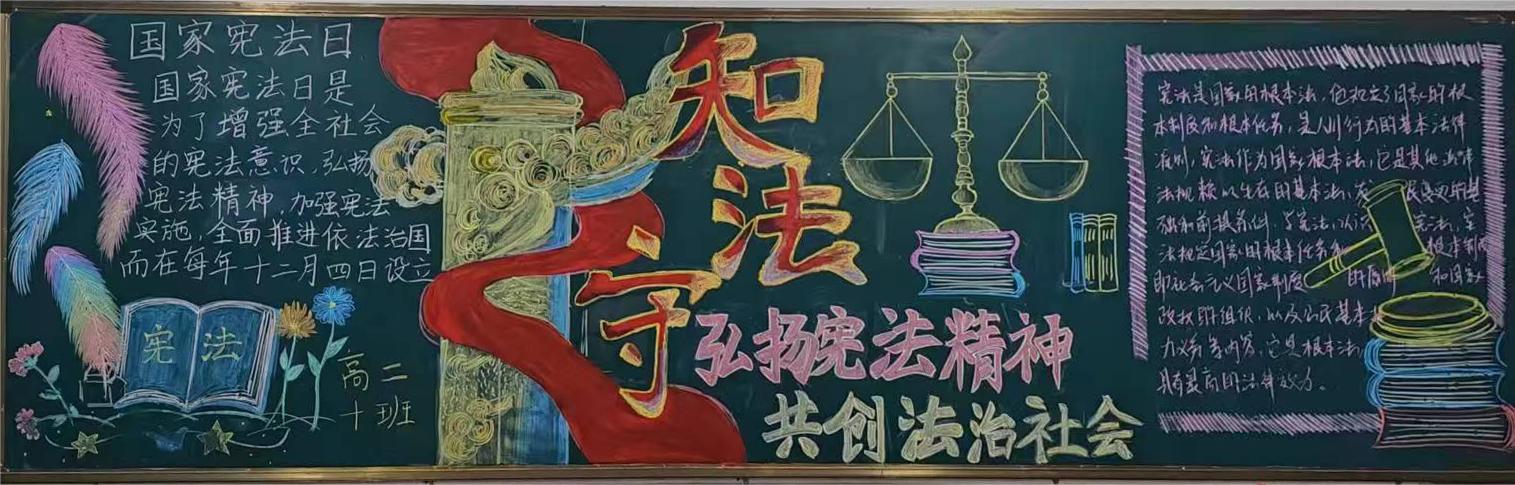 国家宪法日
国家宪法日是
为了增强全社会
的宪法意识，弘扬
宪法精神，加强宪法
实施，全面推进依法治国
而在每年十二月四日设立
宪法
高二
十班
知法
守
弘扬宪法精神
共创法治社会
宪法是国家的根本法，
国家的根
本制度和根本任务，是人们行为的基本法律
准则，宪法作为国家根本法，它是其他法律
法规赖以生存的基本法
础和前提条件
宪法，宪
法规定国家的根本任务和
根本制度
即社会主义国家制度
和国家
政权的组织，以及公民基本
力义务等内容，它是根本法
具有最高的法律效力。